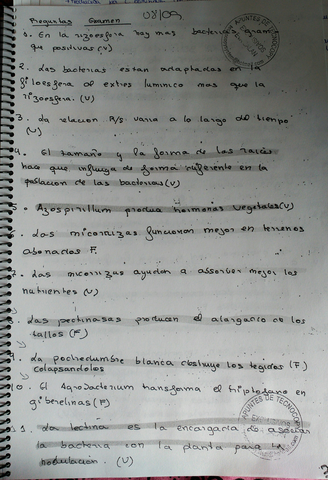 Preguntas Examen
08/09
1. En la rizosfera hay mas bacterias gram
que positivas (V)
2. Las bacterias estan adaptadas en la
filoesfera al extres luminico mas que la
rizoesfera. (V)
3. La relacion R/S varia a lo largo del tiempo
(V)
4. El tamaño y la forma de las raices
hace que influya de forma en la
poblacion de las bacterias (V)
5. Azospirillum produce hormonas vegetales (V)
6. Las micorrizas funcionan mejor en terrenos
abonados F.
7. Las micorrizas ayudan a absorber mejor los
nutrientes (V)
8. Las pectinasas producen el alargamiento de los
tallos (F)
9. La pochedumbre blanca obstruye los tegidos (F)
colapsandolos
10. El Agrobacterium transforma el triptofano en
giberelinas (F)
11. La lectina es la encargada de asociar
la bacteria con la planta para la
nodulación. (V)
APUNTES DE TECNOLOGIA